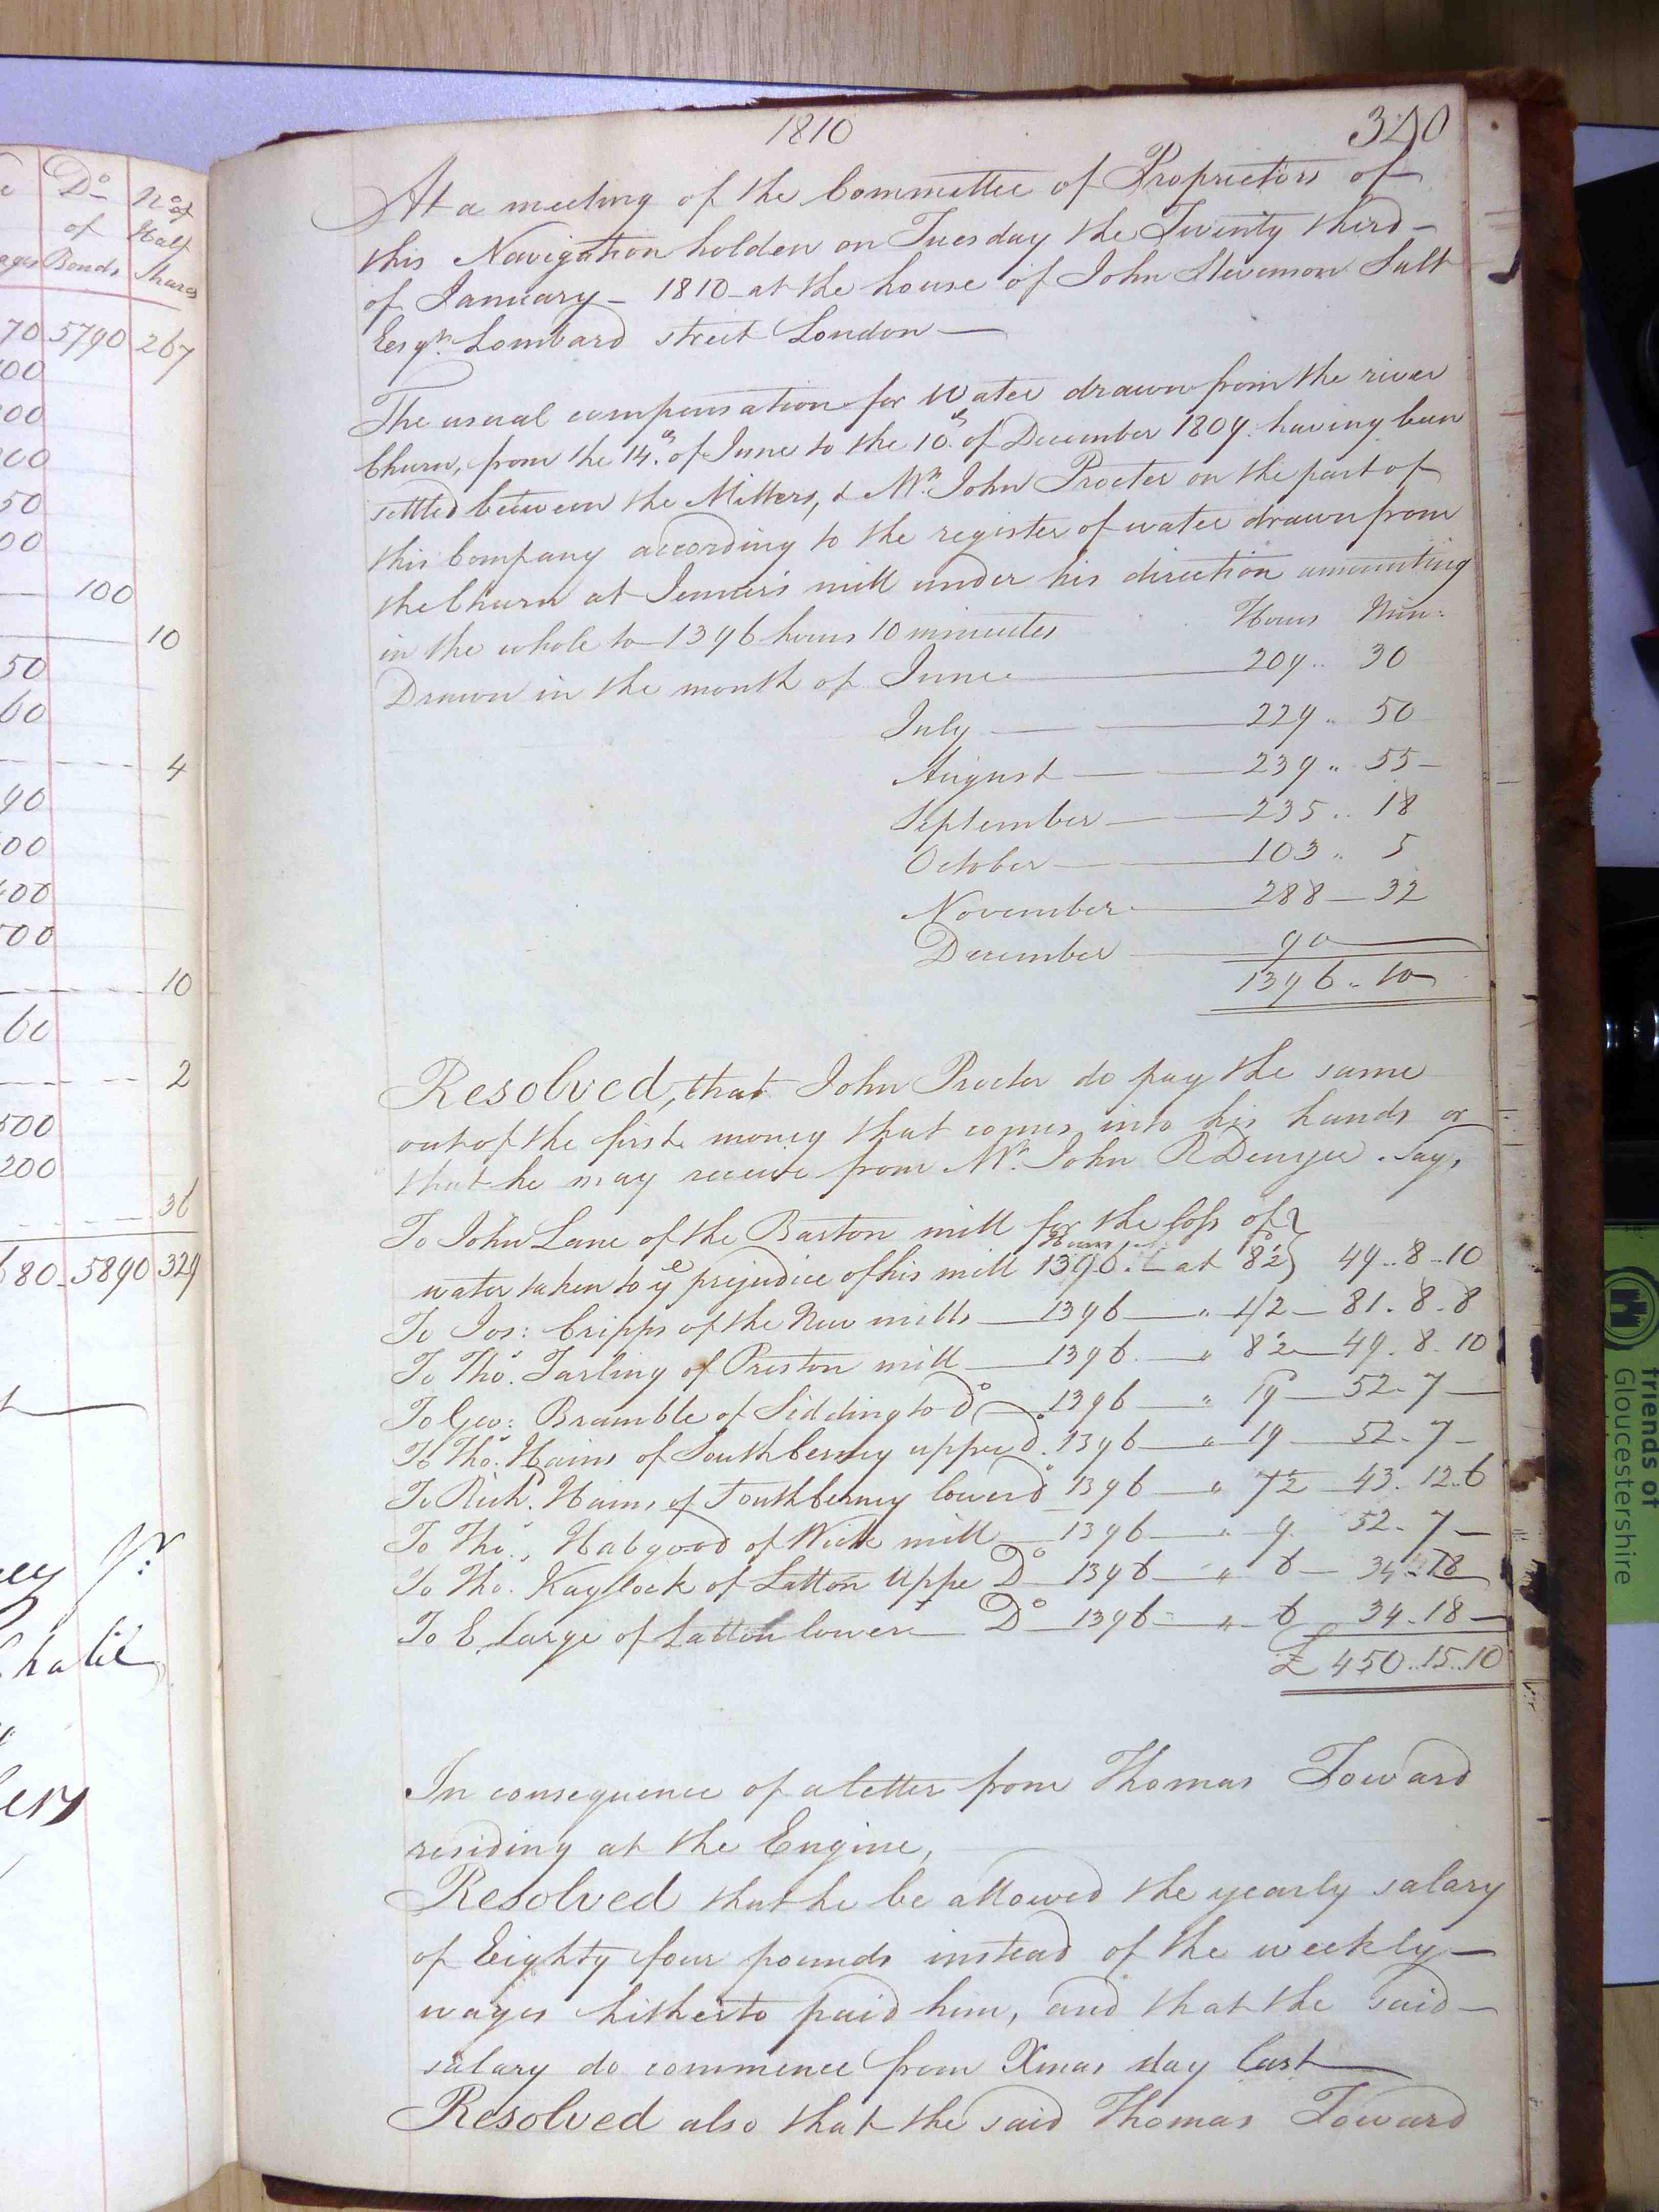 Do
of
Bonds
No of
Half
Shares
70 5790 267
00
00
00
50
00
100
10
50
60
4
90
00
400
700
10
60
2
500
200
36
680 - 5890 329
1810
340
At a meeting of the Committee of Proprietors of
this Navigation holden on Tuesday the Twenty third -
of January - 1810 - at the house of John Stevenson Salt
Esqr. Lombard street London —
The usual compensation for Water drawn from the river
Churn, from the 14th of June to the 10th of December 1809. having been
settled between the Millers, & Mr. John Procter on the part of
this Company according to the register of water drawn from
the Churn at Jenner's mill under his direction amounting
in the whole to 1396 hours 10 minutes Hours Min:
Drawn in the month of June — 209 .. 30
July — 229 .. 50
August — 239 .. 55 -
September — 235 .. 18
October — 103 .. 5
November — 288 — 32
December — 90 —
1396 .. 10
Resolved, that John Procter do pay the same
out of the first money that comes into his hands or
that he may receive from Mr. John R Denyer. Say,
To John Lane of the Barton mill for the loss of
water taken to ye prejudice of his mill 1396 Hours at 8½ 49 .. 8 .. 10
To Jos: Cripps of the New mills — 1396 — " 1/2 — 81 . 8 . 8
To Tho. Tarling of Preston mill — 1396 — " 8½ — 49 . 8 . 10
To Geo: Bramble of Siddington Do — 1396 — " 19 — 52 . 7 —
To Tho. Hains of Southberney upper Do. 1396 — " 19 — 52 . 7 -
To Richd. Hains of Southberney lower Do 1396 — " 7½ — 43 . 12 . 6
To Tho., Habgood of Wick mill — 1396 — " 9 . 52 . 7 —
To Tho. Kaylock of Latton Uppe Do — 1396 — " 6 — 34 - 18
To E Large of Latton lower — Do — 1396 — " 6 34 . 18 —
£ 450 .. 15 .. 10
In consequence of a letter from Thomas Toward
residing at the Engine,
Resolved that he be allowed the yearly salary
of Eighty four pounds instead of the weekly —
wages hitherto paid him, and that the said —
salary do commence from Xmas day last —
Resolved also that the said Thomas Toward
friends of
Gloucestershire